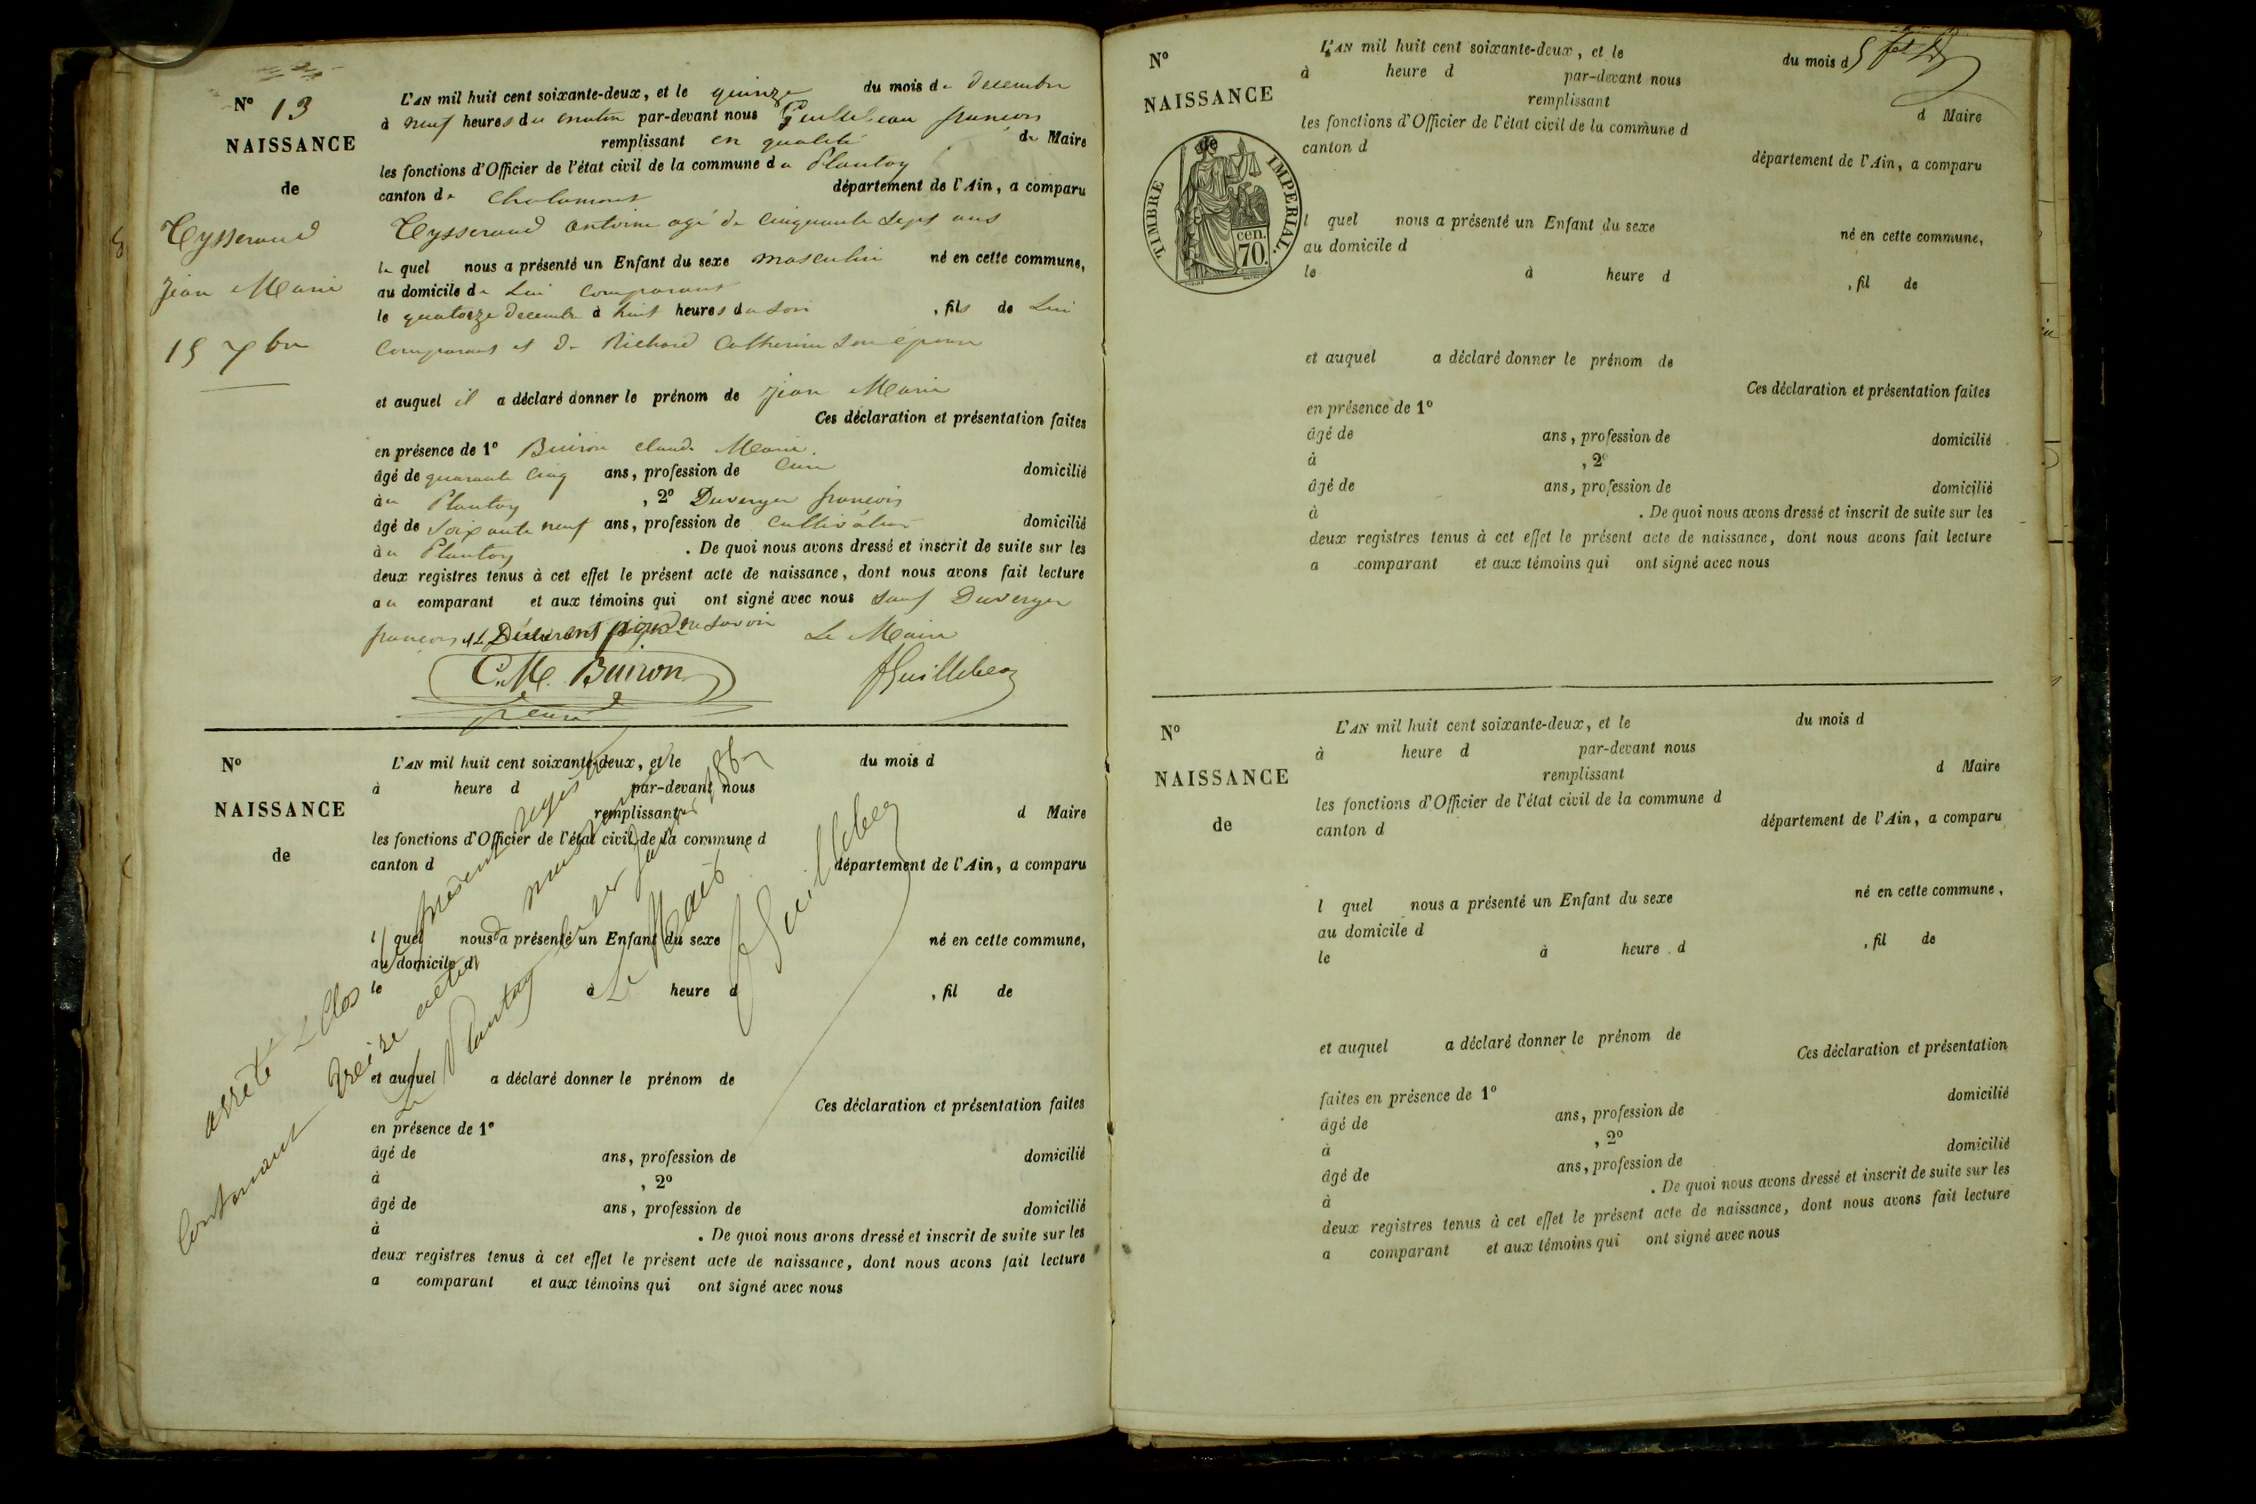 N° 13
NAISSANCE
de
Teysseraud
Jean Marie
15 xbre
L'AN mil huit cent soixante-deux, et le quinze du mois de decembre
à neuf heures du matin par-devant nous Guillebeau françois
remplissant en qualité de Maire
les fonctions d'Officier de l'état civil de la commune du Plantay
canton de Chalamont département de l'Ain, a comparu
Teysseraud antoine agé de cinquante sept ans
le quel nous a présenté un Enfant du sexe masculin né en cette commune,
au domicile de Lui comparant
le quatorze decembre à huit heures du soir , fils de Lui
comparant et de Richard Catherine son épouse
et auquel il a déclaré donner le prénom de jean Marie
Ces déclaration et présentation faites
en présence de 1° Buiron claude Marie.
âgé de quarante cinq ans, profession de Curé domicilié
au Plantay , 2° Duverger françois
âgé de Soixante neuf ans, profession de Cultivateur domicilié
au Plantay . De quoi nous avons dressé et inscrit de suite sur les
deux registres tenus à cet effet le présent acte de naissance, dont nous avons fait lecture
au comparant et aux témoins qui ont signé avec nous sauf Duverger
françois savoir Le Maire
C. M. Buiron FGuillebeau
curé
N°
NAISSANCE
de
L'AN mil huit cent soixante-deux, et le du mois d
à heure d par-devant nous
remplissant d Maire
les fonctions d'Officier de l'état civil de la commune d
canton d département de l'Ain, a comparu
l quel nous a présenté un Enfant du sexe né en cette commune,
au domicile d
le à heure d , fil de
et auquel a déclaré donner le prénom de
Ces déclaration et présentation faites
en présence de 1°
âgé de ans, profession de domicilié
à , 2°
âgé de ans, profession de domicilié
à . De quoi nous avons dressé et inscrit de suite sur les
deux registres tenus à cet effet le présent acte de naissance, dont nous avons fait lecture
a comparant et aux témoins qui ont signé avec nous
arrêté & Clos le présent registre
Contenant treize actes
Le Plantay le 1er
Le Maire
FGuillebeau
N°
NAISSANCE
de
TIMBRE IMPERIAL.
70 cen.
L'AN mil huit cent soixante-deux, et le du mois d
à heure d par-devant nous
remplissant d Maire
les fonctions d'Officier de l'état civil de la commune d
canton d département de l'Ain, a comparu
l quel nous a présenté un Enfant du sexe né en cette commune,
au domicile d
le à heure d , fil de
et auquel a déclaré donner le prénom de
Ces déclaration et présentation faites
en présence de 1°
âgé de ans, profession de domicilié
à , 2°
âgé de ans, profession de domicilié
à . De quoi nous avons dressé et inscrit de suite sur les
deux registres tenus à cet effet le présent acte de naissance, dont nous avons fait lecture
a comparant et aux témoins qui ont signé avec nous
N°
NAISSANCE
de
L'AN mil huit cent soixante-deux, et le du mois d
à heure d par-devant nous
remplissant d Maire
les fonctions d'Officier de l'état civil de la commune d
canton d département de l'Ain, a comparu
l quel nous a présenté un Enfant du sexe né en cette commune,
au domicile d
le à heure d , fil de
et auquel a déclaré donner le prénom de
Ces déclaration et présentation
faites en présence de 1° domicilié
âgé de ans, profession de
à , 2° domicilié
âgé de ans, profession de
à . De quoi nous avons dressé et inscrit de suite sur les
deux registres tenus à cet effet le présent acte de naissance, dont nous avons fait lecture
a comparant et aux témoins qui ont signé avec nous